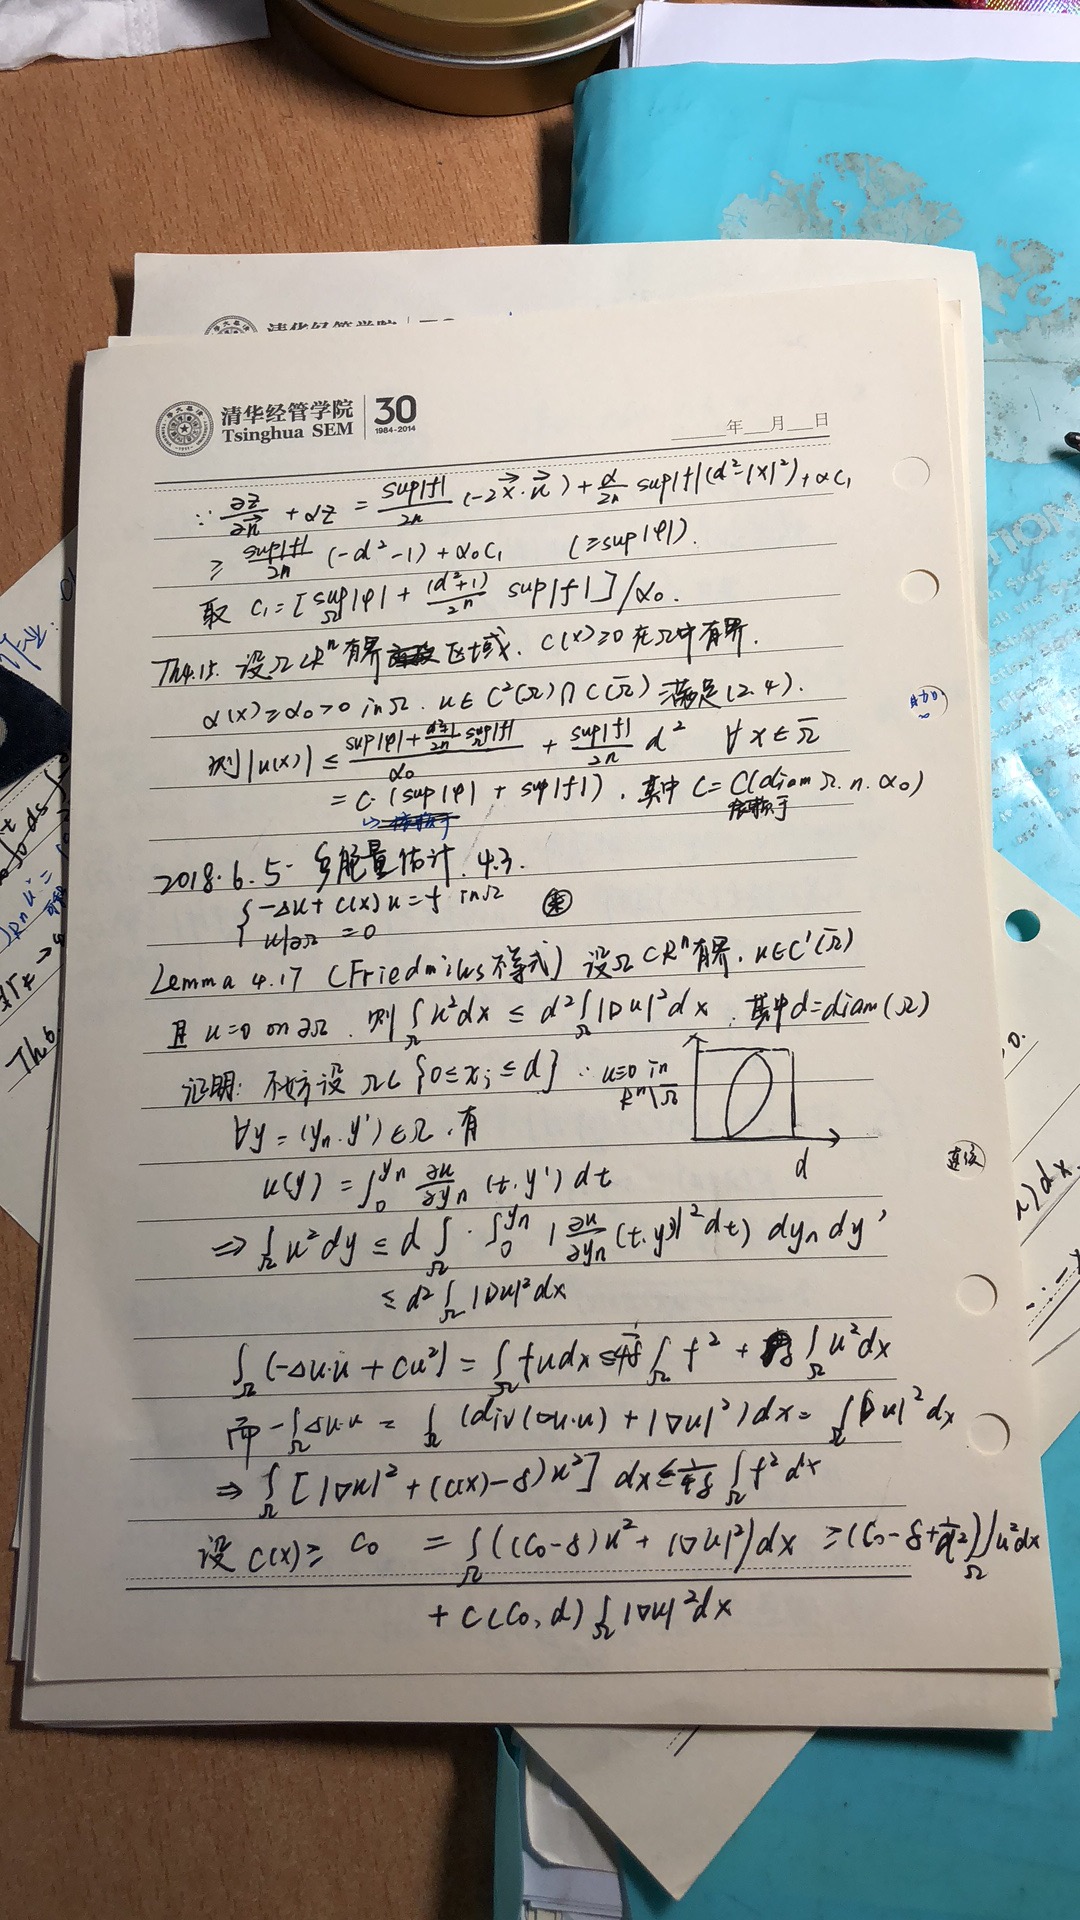 清华经管学院
清华经管学院 30
Tsinghua SEM 1984-2014
年 月 日
∵ ∂z/∂n⃗ + αz = sup|f|/2n (-2x⃗·n⃗) + α/2n sup|f|(d²-|x|²) + αC₁
≥ sup|f|/2n (-d²-1) + α₀C₁ (≥sup|φ|).
取 C₁ = [sup_Ω|φ| + (d²+1)/2n sup|f|]/α₀.
Th4.15. 设Ω⊂Rⁿ有界区域. C(x)≥0在Ω中有界.
α(x)≥α₀>0 in Ω. u∈C²(Ω)∩C(Ω̄) 满足(2.4).
则|u(x)| ≤ (sup|φ| + (d²+1)/2n sup|f|)/α₀ + sup|f|/2n d² ∀x∈Ω̄
= C·(sup|φ| + sup|f|), 其中 C=C(diamΩ.n.α₀)
2018.6.5. 能量估计. 4.3.
{-Δu + c(x)u = f in Ω
u|∂Ω = 0
Lemma 4.17 (Friedrichs不等式) 设Ω⊂Rⁿ有界. u∈C¹(Ω̄)
且 u=0 on ∂Ω. 则∫_Ω u²dx ≤ d²∫_Ω |Du|²dx. 其中d=diam(Ω)
证明: 不妨设 Ω⊂{0≤xᵢ≤d} ∴ u≡0 in Rⁿ\Ω
∀y=(yₙ.y')∈Ω.有
d
连续
u(y) = ∫₀^yₙ ∂u/∂yₙ (t.y')dt
⇒ ∫_Ω u²dy ≤ d∫_Ω·∫₀^yₙ |∂u/∂yₙ(t.y')|²dt) dyₙdy'
≤ d²∫_Ω |Du|²dx
∫_Ω (-Δu·u + cu²) = ∫_Ω fudx ≤ 1/4δ ∫_Ω f² + δ∫_Ω u²dx
而 -∫_Ω Δu·u = ∫_Ω (div(∇u·u) + |∇u|²)dx = ∫_Ω |Du|²dx
⇒ ∫_Ω [|∇u|² + (c(x)-δ)u²] dx ≤ 1/4δ ∫_Ω f²dx
设 C(x)≥ C₀ = ∫_Ω ((C₀-δ)u² + |∇u|²)dx ≥ (C₀-δ+1/d²)∫_Ω u²dx
+ C(C₀,d)∫_Ω |∇u|²dx